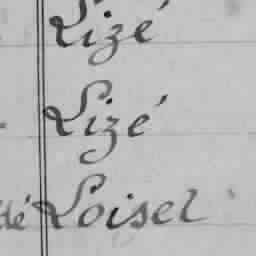 Lizé
Lizé
dé Loisel